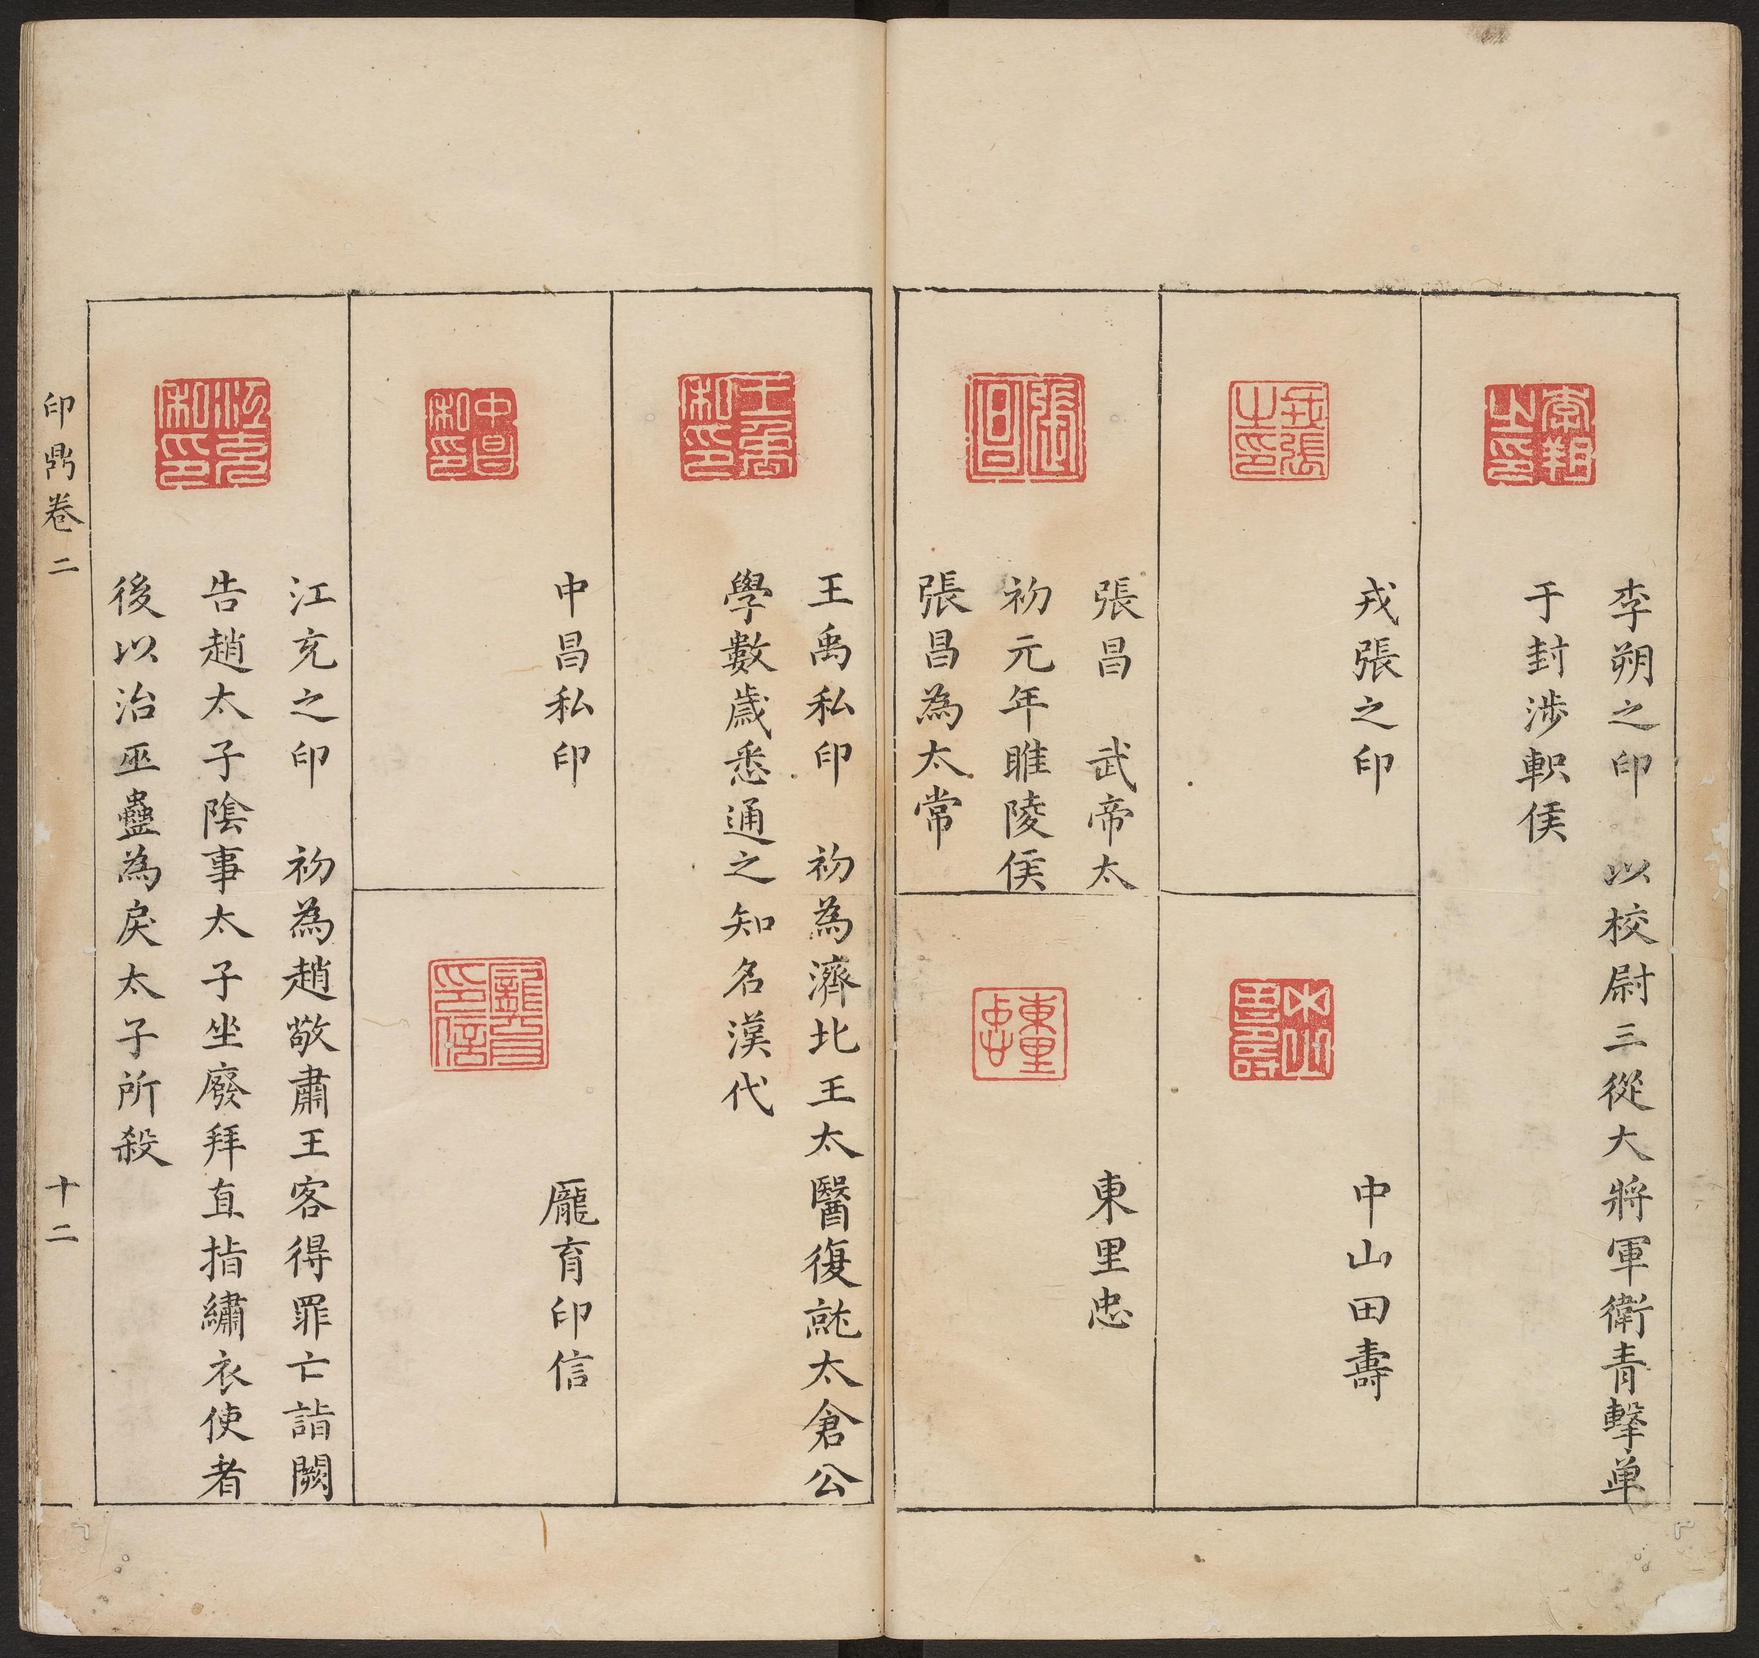 李朔之印　以校尉三從大將軍衛青擊单
于封涉軹侯
戎張之印
中山田壽
張昌　武帝太
初元年睢陵侯
張昌為太常
東里忠
王禹私印　初為濟北王太醫復就太倉公
學數歲悉通之知名漢代
中昌私印
龐育印信
江充之印　初為趙敬肅王客得罪亡詣闕
告趙太子陰事太子坐廢拜直指繡衣使者
後以治巫蠱為戾太子所殺
印鼎卷二
十二